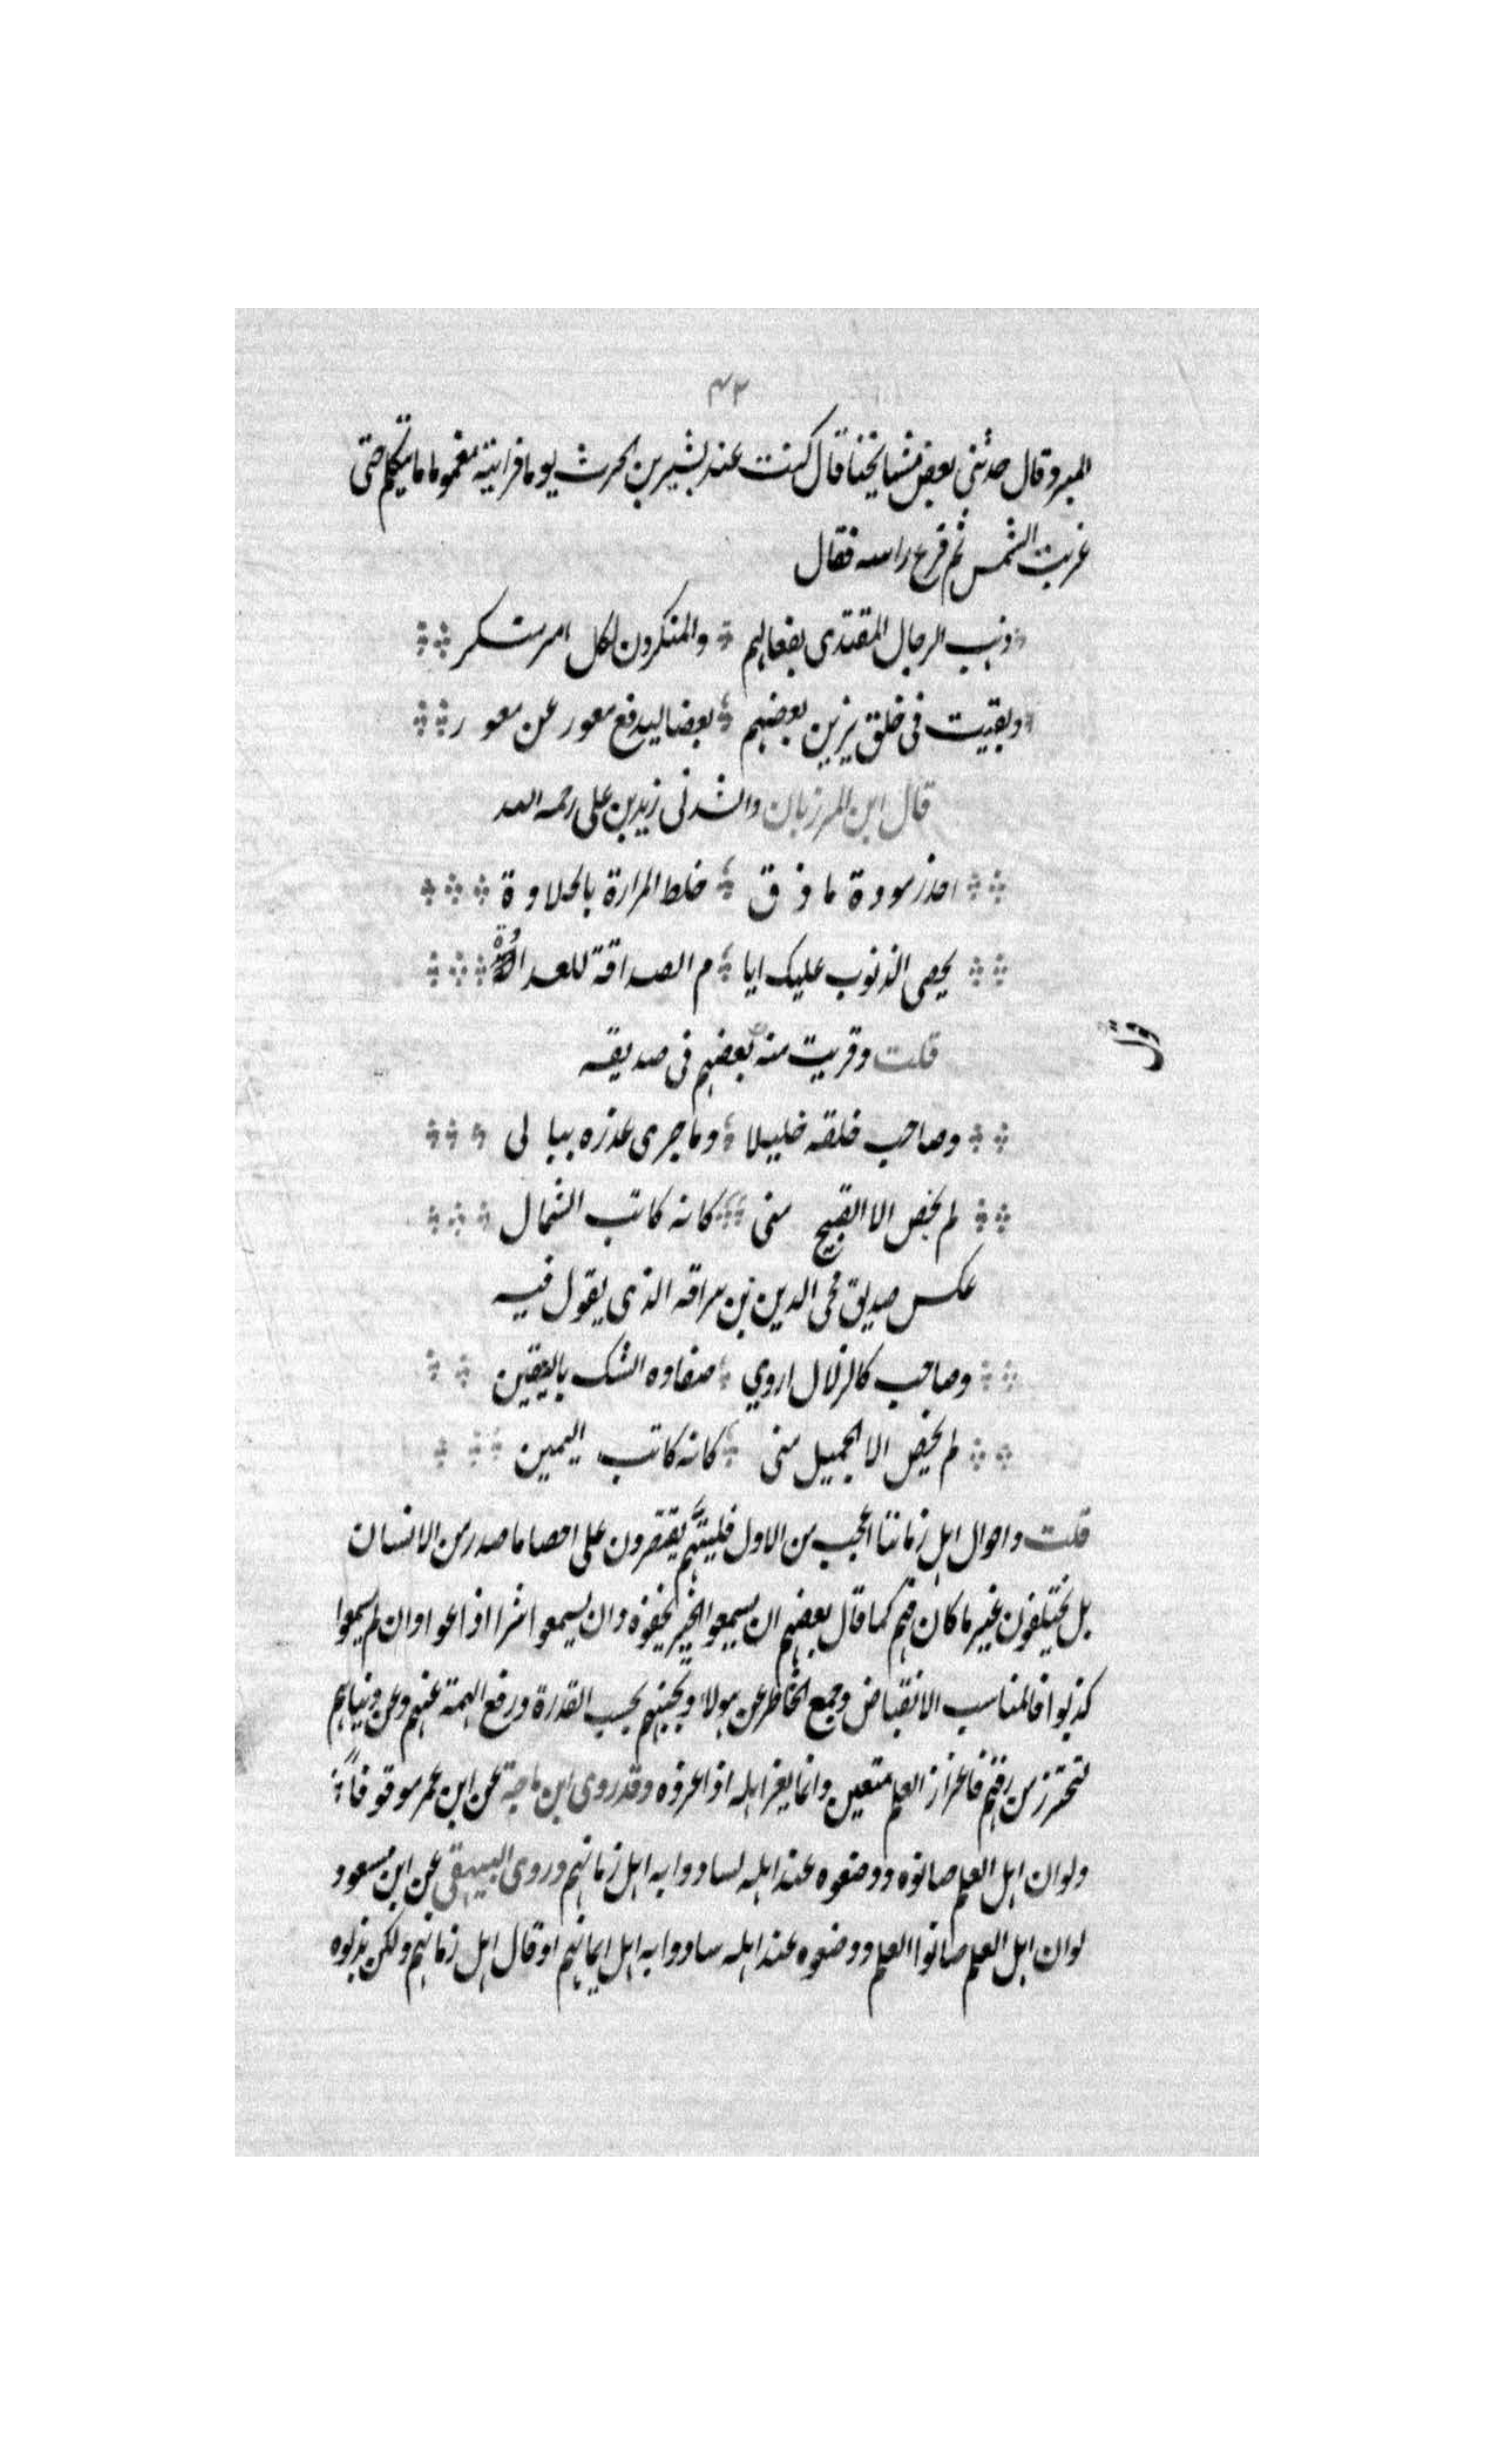 ٤٣
المبرد قال حدثنى بعض مشايخنا قال كنت عند بشير بن الحرث يوما فرايته مغموما ما يتكلم حتى
غربت الشمس ثم فرع راسه فقال
ذهب الرجال المقتدى بفعالهم والمنكرون لكل امر منكر
وبقيت فى خلق يزين بعضهم بعضا ليدفع معور عن معور
قال ابن المرزبان وانشدنى زيد بن على رحمه الله
احذر مودة ماذق خلط المرارة بالحلاوة
يحصى الذنوب عليك ايا م الصداقة للعداوة
قلت وقريب منه بعضهم فى صديقه
وصاحب خلقه خليلا وما جرى غدره ببالى
لم يحص الا القبيح منى كانه كاتب الشمال
عكس صديق محى الدين بن سراقه الذى يقول فيه
وصاحب كالزلال اروي صفاوه الشك باليقين
لم يحص الا الجميل منى كانه كاتب اليمين
قلت واحوال اهل زماننا اعجب من الاول فليتهم يقتصرون على احصا ما صدر من الانسان
بل يختلقون غير ما كان فهم كما قال بعضهم ان يسمعوا الخير يخفوه وان يسمعوا شرا اذاعوا وان لم يسمعوا
كذبوا فالمناسب الانقباض وجمع الخاطر عن هولاء وتجنبهم بحسب القدرة ورفع الهمة عنهم وعن دنياهم
لتحترز من رقهم فاعزاز العلم متعين وانما يعز اهله اذا عزوه وقد روى ابن ماجة عن ابن عمر موقوفاً
ولو ان اهل العلم صانوه ووضعوه عند اهله لسادوا به اهل زمانهم وروى البيهقى عن ابن مسعود
لو ان اهل العلم صانوا العلم ووضعوه عند اهله سادوا به اهل ايمانهم او قال اهل زمانهم ولكن بذلوه